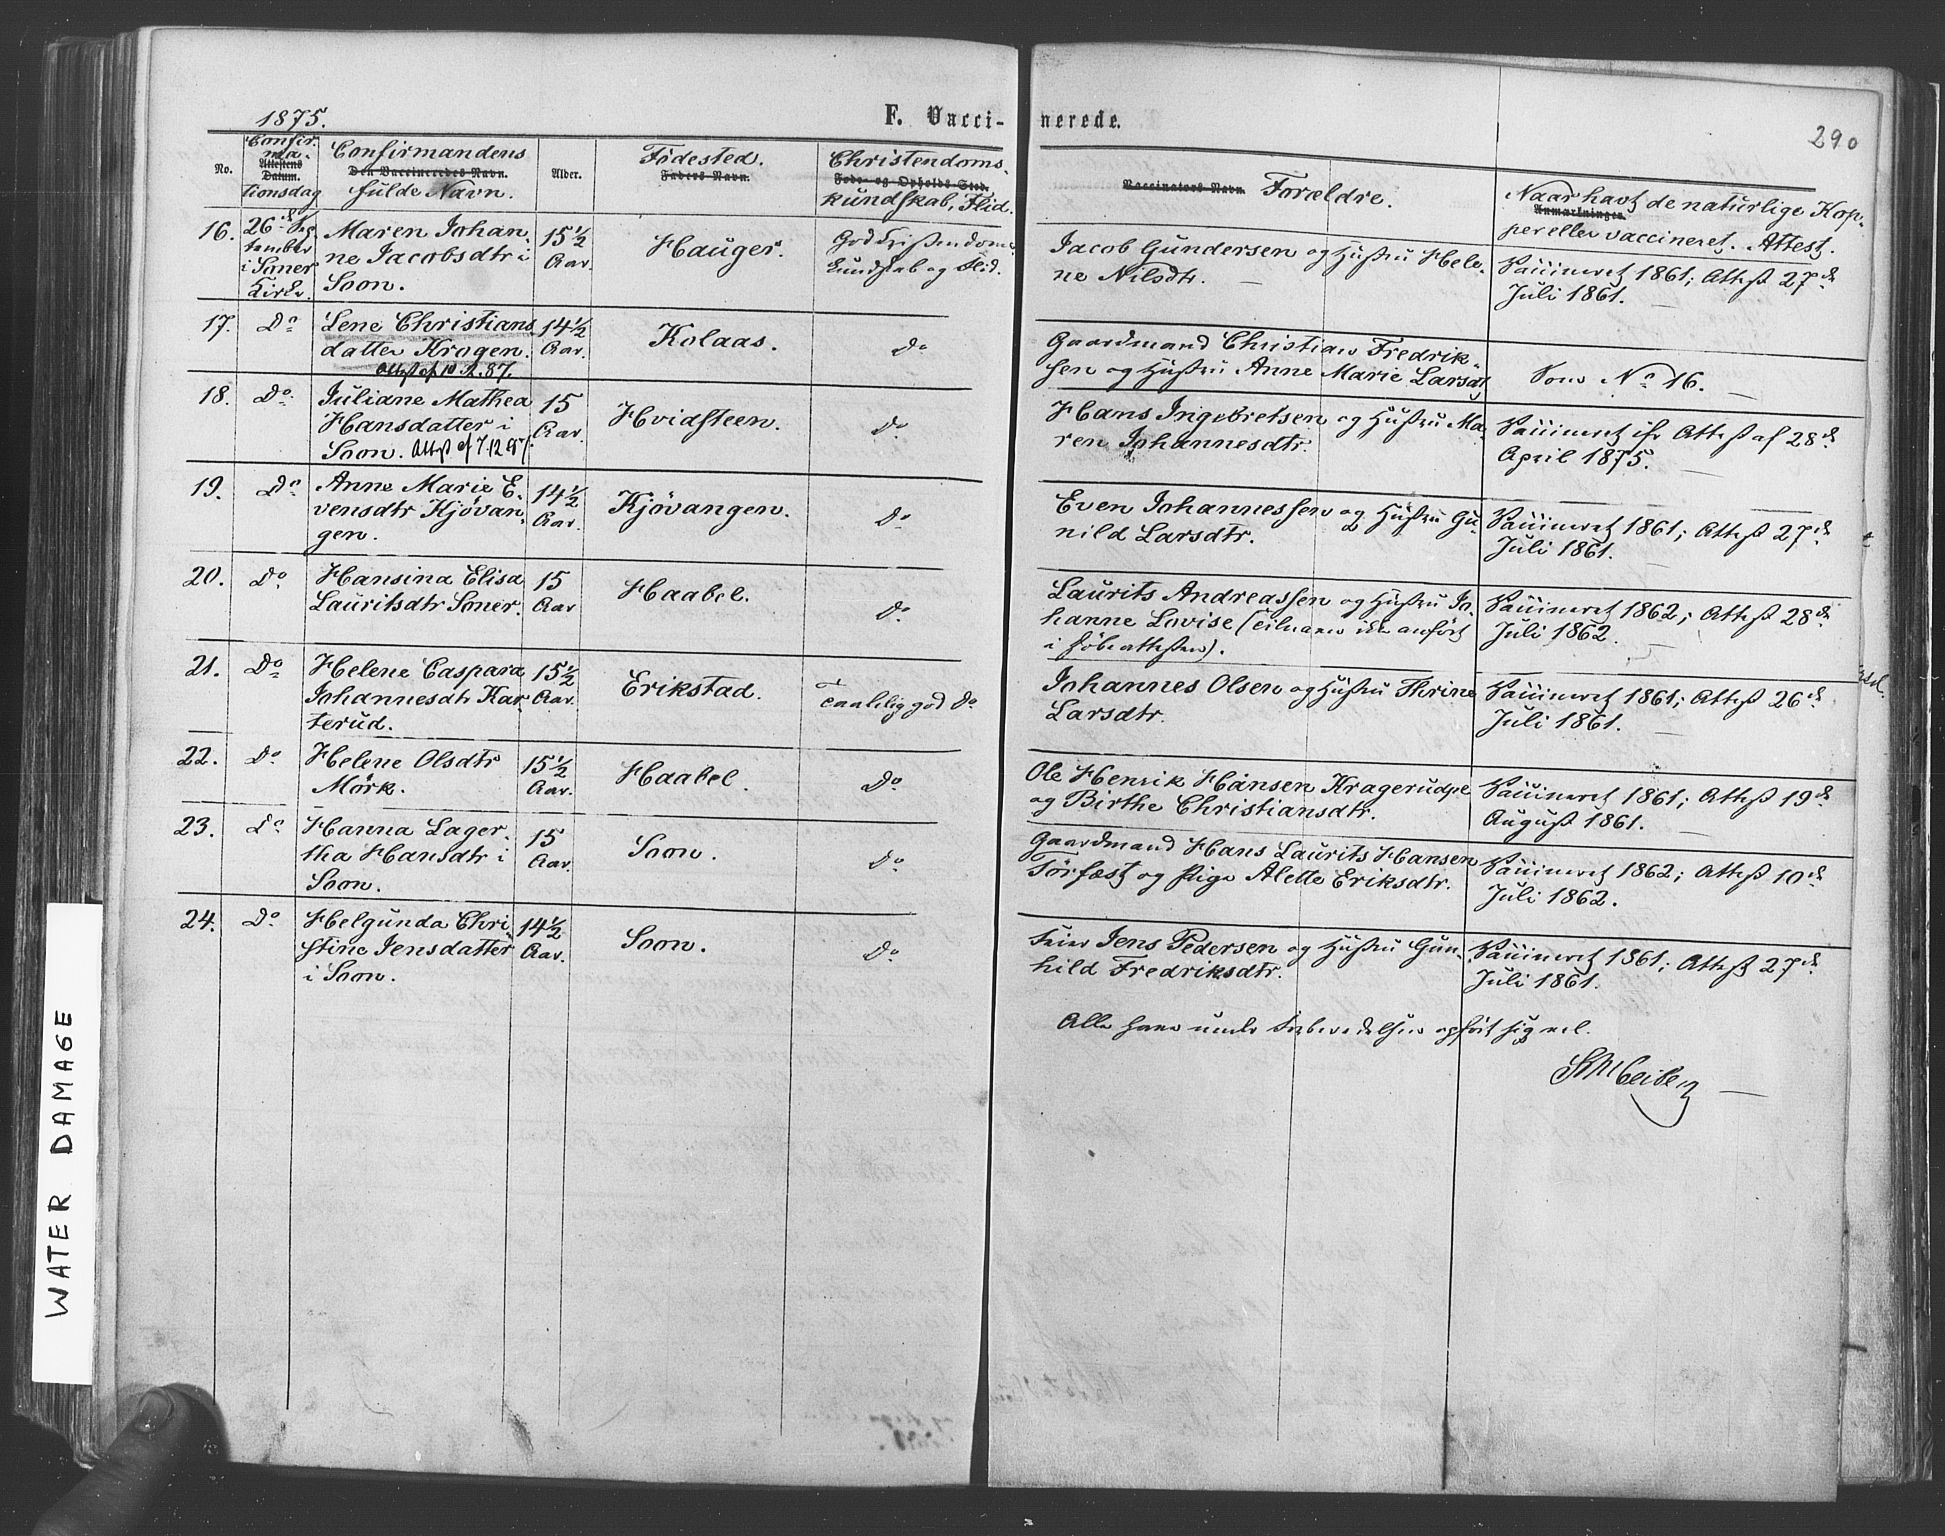 1875.
F. Vacci-
nerede.
290
No.
Confir-
ma-
Attestens
Datum.
tionsdag
Confirmandens
Den Vaccineredes Navn.
fulde Navn.
Alder.
Födested.
Faders Navn.
Christendoms-
Føde- og Opholds-Sted.
kundskab, Flid.
Vaccinators Navn.
Forældre.
Naar havt de naturlige Kop-
Anmærkninger.
per eller vaccineret. Attest.
16.
26de Sep
tember
i Soner
Kirke.
Maren Johan-
ne Jacobsdtr i
Soon.
15½
Aar.
Hauger.
God Kristendoms
kundskab og Flid.
Jacob Gundersen og Hustru Hele-
ne Nilsdtr.
Vaccineret 1861; Attest 27de
Juli 1861.
17.
Do
Lene Christians
datter Krogen.
14½
Aar.
Kolaas.
Do
Gaardmand Christian Fredrik-
sen og Hustru Anne Marie Larsdtr
Som No 16.
18.
Do
Juliane Mathea
Hansdatter i
Soon. Attest af 7.12.87.
15
Aar.
Hvidsteen.
Do
Hans Ingebretsen og Hustru Ma-
ren Johannesdtr.
Vaccineret ifr Attest af 28de
April 1875.
19.
Do
Anne Marie E-
vensdtr Kjövan-
gen.
14½
Aar.
Kjövangen.
Do
Even Johannessen og Hustru Gu-
nild Larsdtr.
Vaccineret 1861; Attest 27de
Juli 1861.
20.
Do
Hansina Elisa
Lauritsdtr Soner.
15
Aar
Haabel.
Do
Laurits Andreassen og Hustru Jo-
hanne Lovise (Tilnavn ikke anfört
i Döbeattesten).
Vaccineret 1862; Attest 28de
Juli 1862.
21.
Do
Helene Caspara
Johannesdtr Kar
terud.
15½
Aar.
Erikstad.
Taalelig god Do
Johannes Olsen og Hustru Thrine
Larsdtr.
Vaccineret 1861; Attest 26de
Juli 1861.
22.
Do
Helene Olsdtr
Mörk.
15½
Aar.
Haabel.
Do
Ole Henrik Hansen Kragerudpe
og Birthe Christiansdtr.
Vaccineret 1861; Attest 19de
August 1861.
23.
Do
Hanna Lager-
tha Hansdtr i
Soon.
15
Aar.
Soon.
Do
Gaardmand Hans Laurits Hansen
Törfæst og Pige Alette Eriksdtr.
Vaccineret 1862; Attest 10de
Juli 1862.
24.
Do
Helgunda Chri-
stine Jensdatter
i Soon.
14½
Aar.
Soon.
Do
Feier Jens Pedersen og Hustru Gun-
hild Fredriksdtr.
Vaccineret 1861; Attest 27de
Juli 1861.
Alle have under Forberedelsen opfört sig vel.
WATER DAMAGE